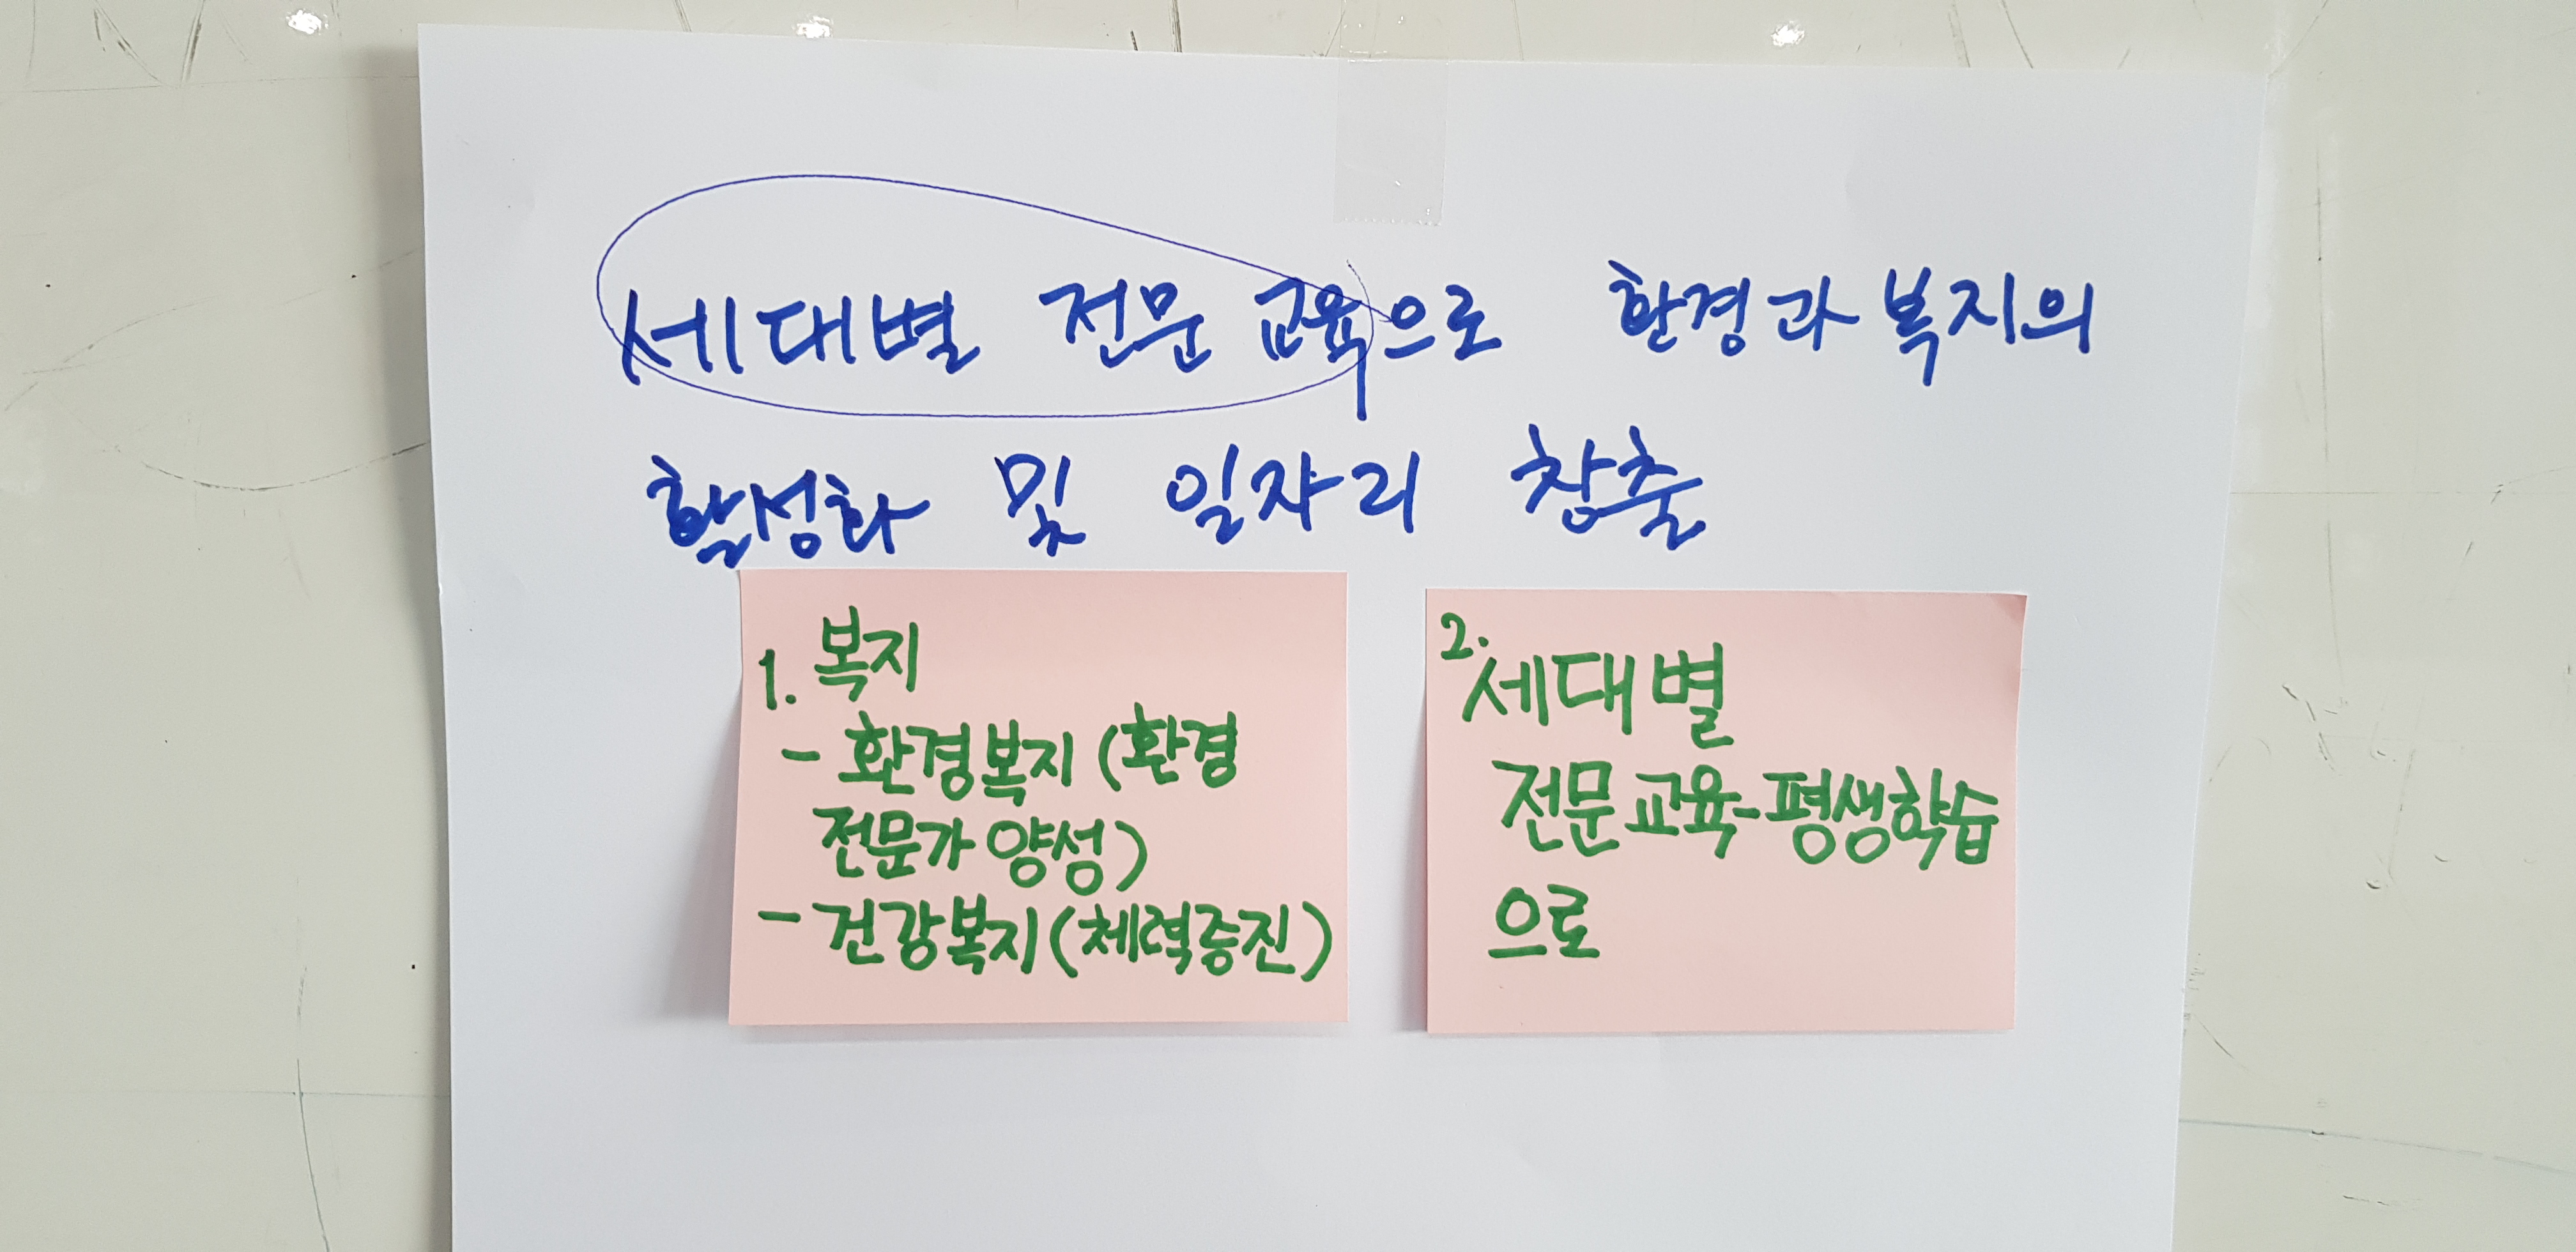 세대별 전문교육으로 환경과 복지의
활성화 및 일자리 창출
1. 복지
- 환경복지 (환경
전문가 양성)
- 건강복지 (체력증진)
2. 세대별
전문교육-평생학습
으로